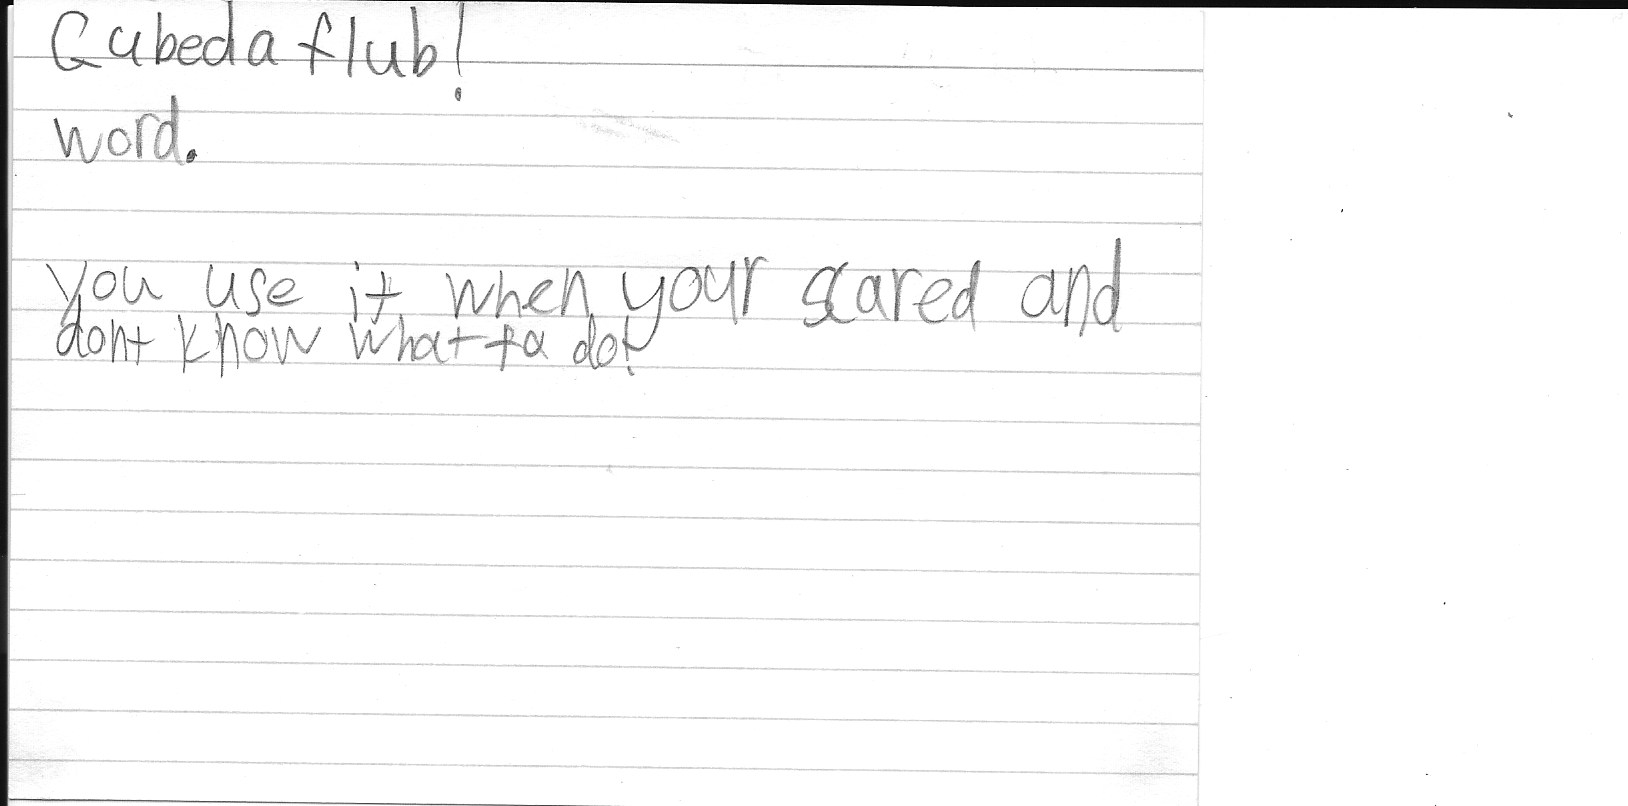 Gubeda flub!
word.
you use it when your scared and
dont know what ta do!